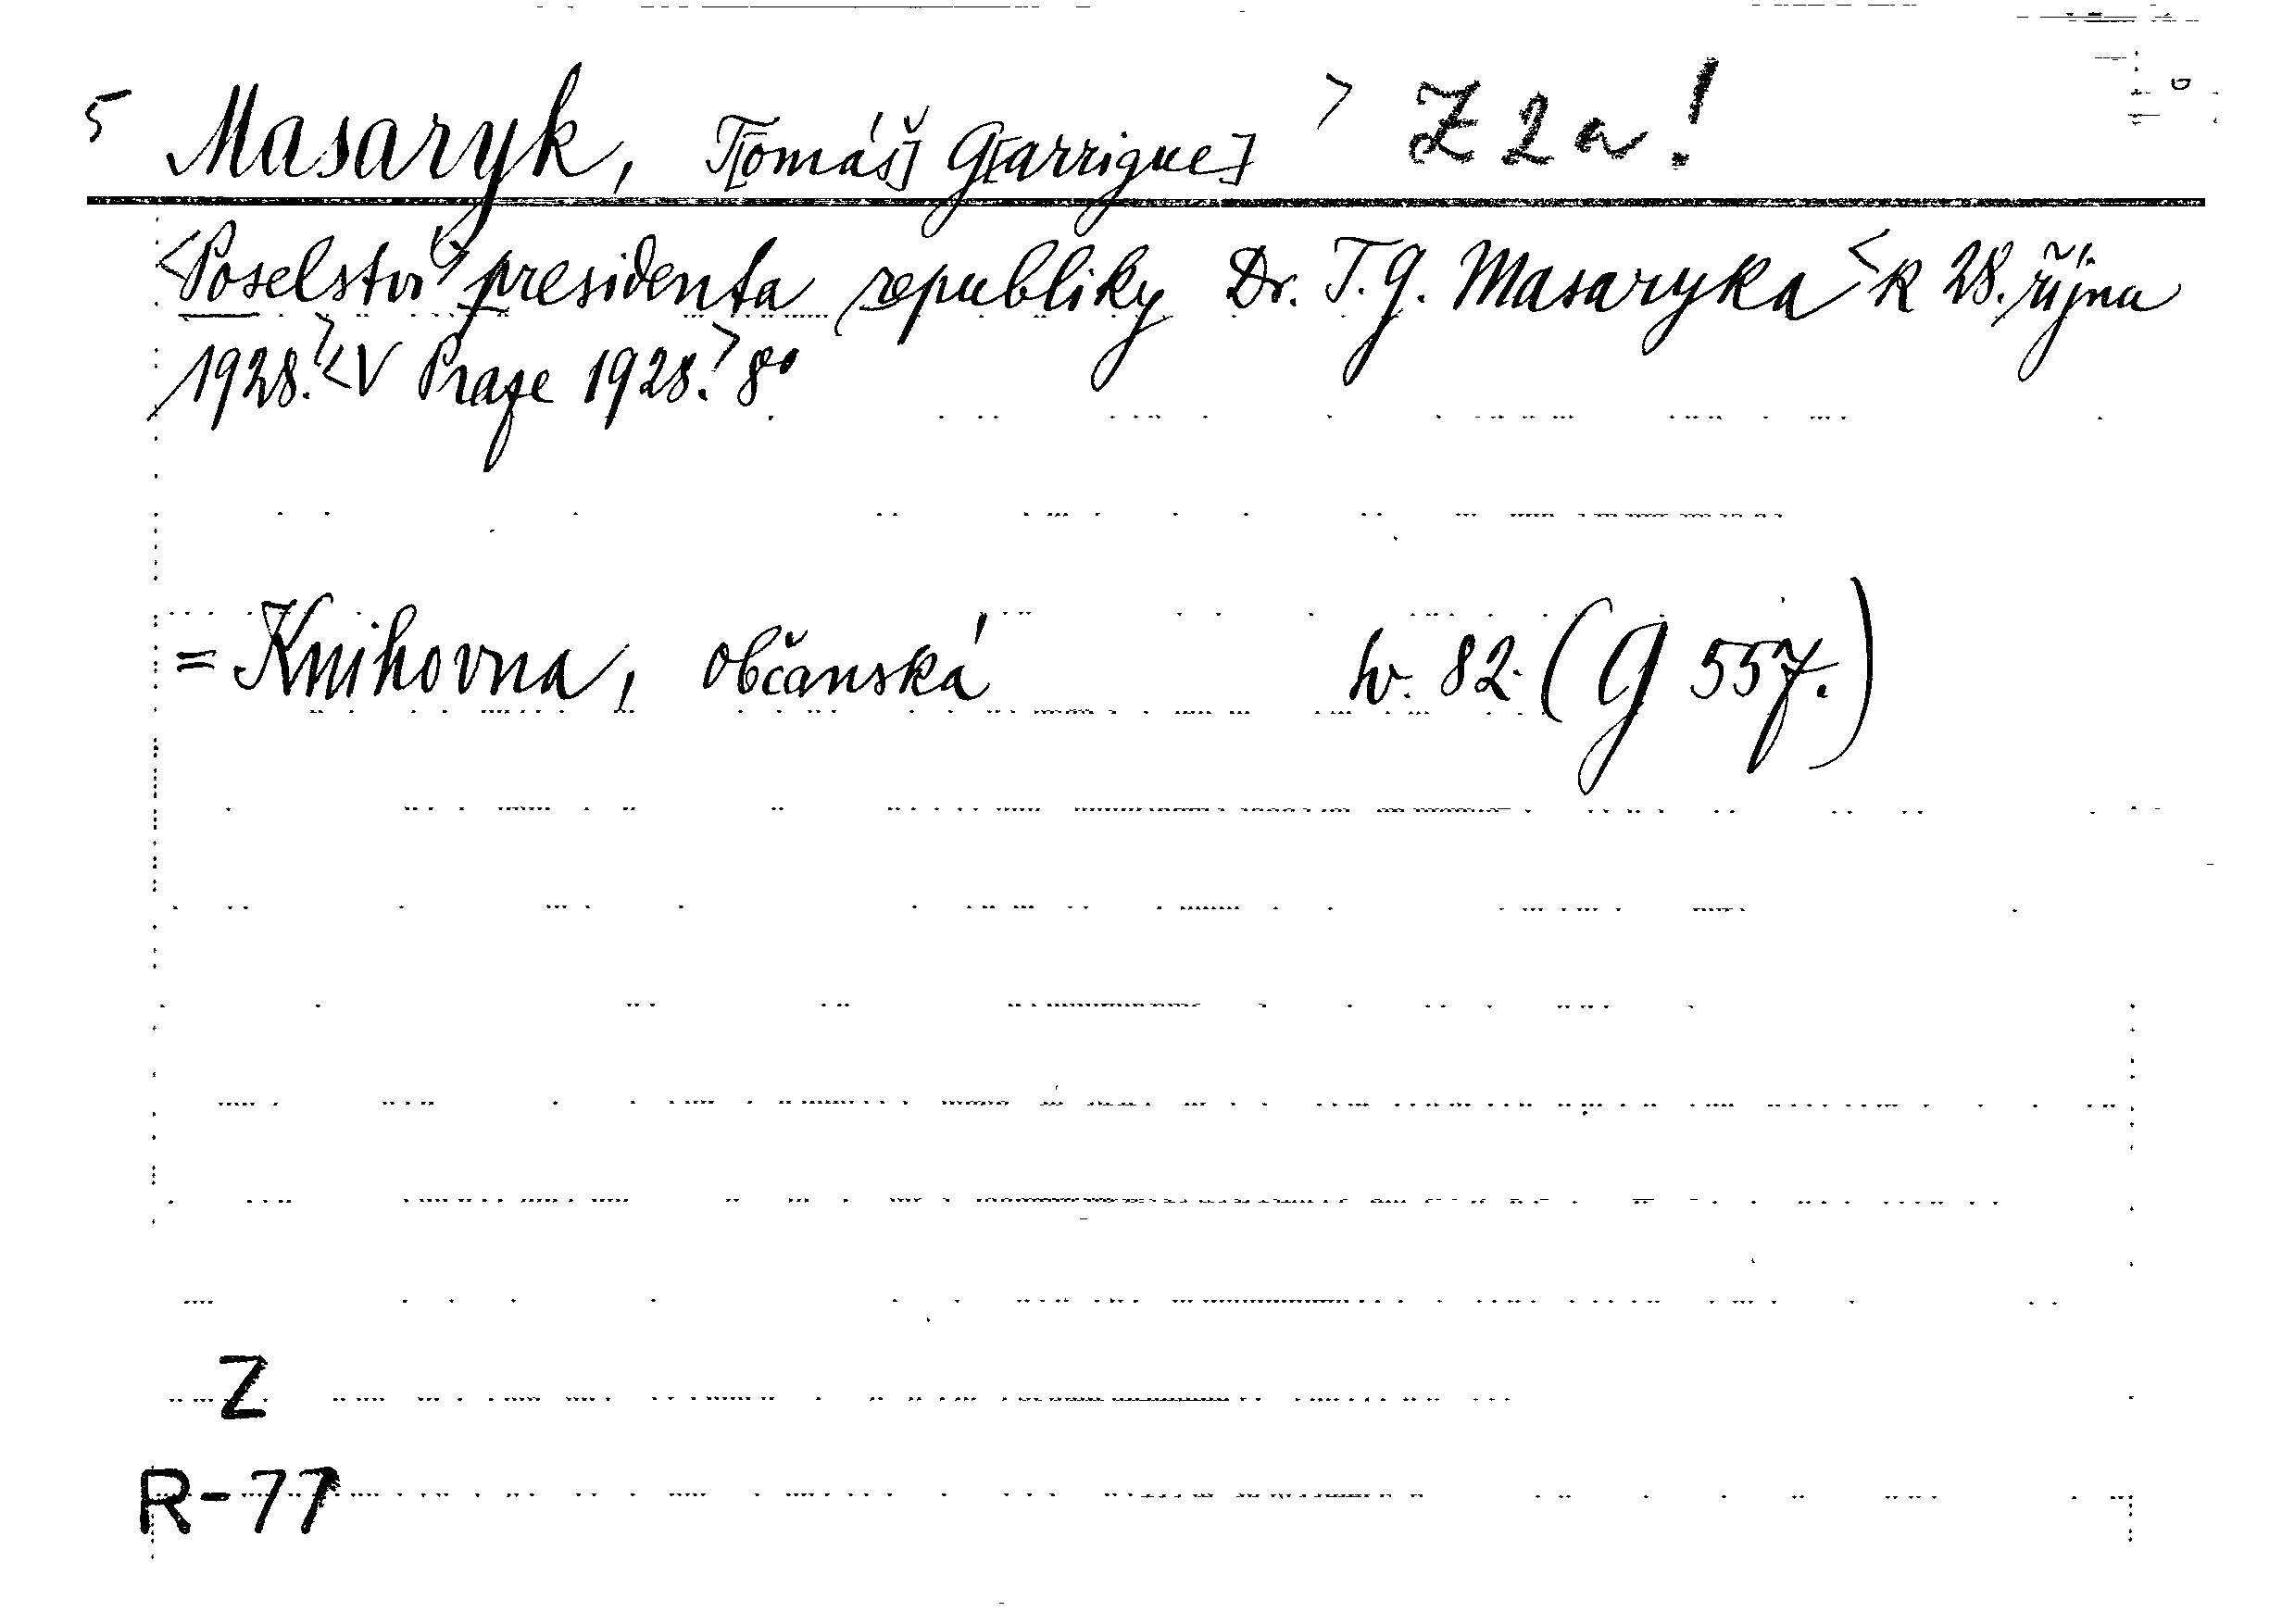 < Masaryk, T[omáš] G[arrigue] > Z 2 a!
<Poselství> presidenta republiky Dr. T. G. Masaryka < k 28. října
1928.> <V Praze 1928.> 8°
= Knihovna, občanská sv. 82. (G 557.)
Z
R-77